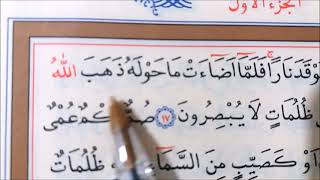 الجزء الاول
وْقَدَ نَارًا فَلَمَّا اَضَاءَتْ مَا حَوْلَهُ ذَهَبَ اللّٰهُ
ظُلُمَاتٍ لَا يُبْصِرُونَ ١٧ صُمٌّ بُكْمٌ عُمْيٌ
اَوْ كَصَيِّبٍ مِنَ السَّمَاءِ ظُلُمَاتٌ